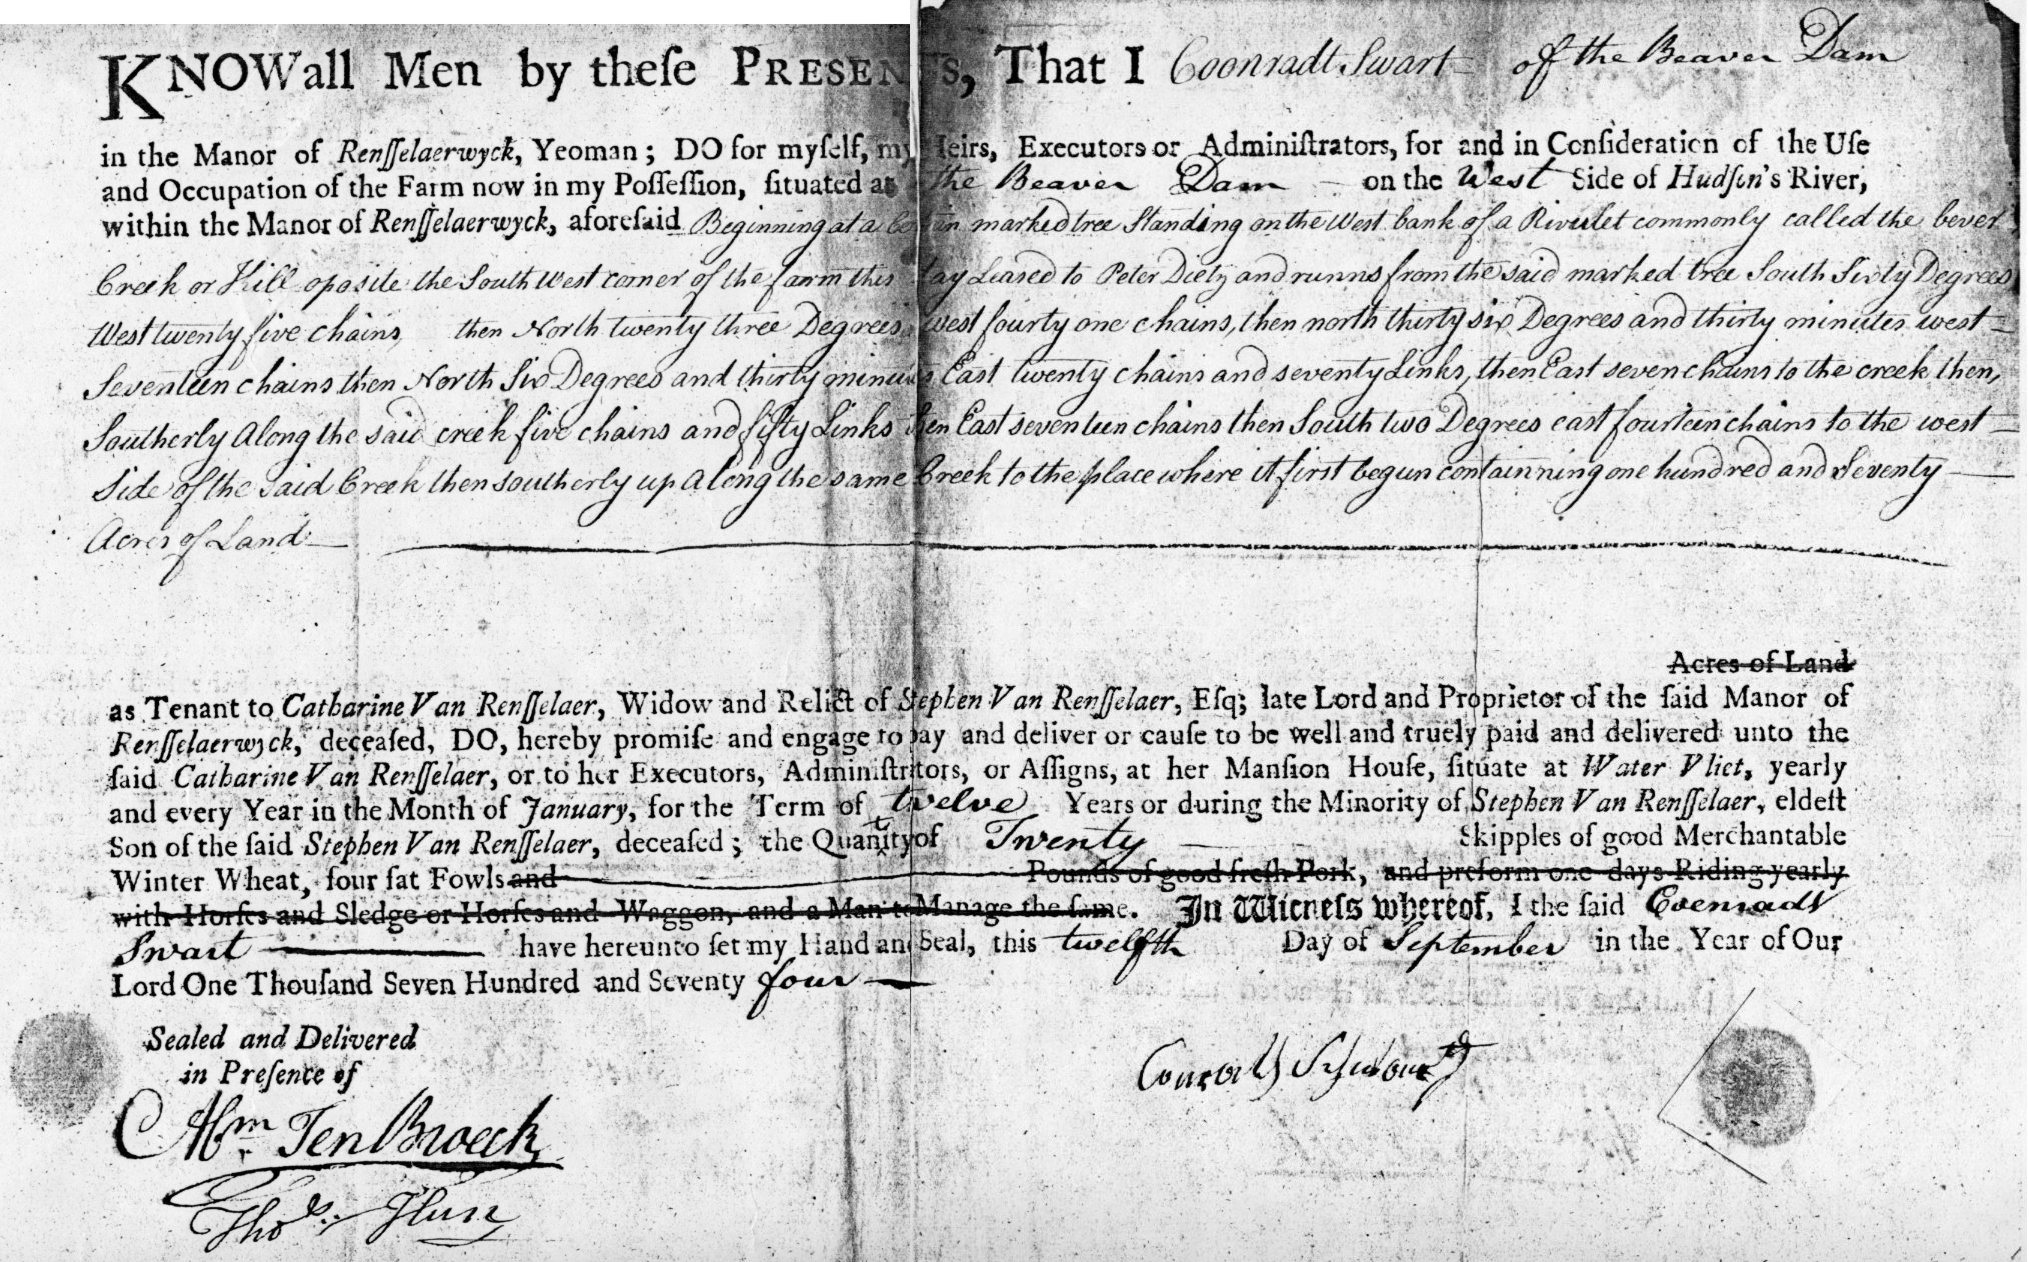 KNOW all Men by theſe PRESENTS, That I Coonradt Swart of the Beaver Dam
in the Manor of Renſſelaerwyck, Yeoman; DO for myſelf, my Heirs, Executors or Adminiſtrators, for and in Conſideration of the Uſe
and Occupation of the Farm now in my Poſſeſſion, ſituated at the Beaver Dam on the West Side of Hudſon's River,
within the Manor of Renſſelaerwyck, aforeſaid Beginning at a Certain marked tree Standing on the West bank of a Rivulet commonly called the bever
Creek or Kill oposite the South West corner of the farm this day Leased to Peter Dietz and runns from the said marked tree South Sixty Degrees
West twenty five chains, then North twenty three Degrees west fourty one chains, then north thirty six Degrees and thirty minutes west
Seventeen chains then North Six Degrees and thirty minutes East twenty chains and seventy Links, then East seven chains to the creek then,
Southerly Along the said creek five chains and fifty Links then East seventeen chains then South two Degrees east fourteen chains to the west
Side of the said Creek then southerly up along the same Creek to the place where it first begun containning one hundred and Seventy
Acres of Land
Acres of Land
as Tenant to Catharine Van Renſſelaer, Widow and Relict of Stephen Van Renſſelaer, Eſq; late Lord and Proprietor of the ſaid Manor of
Renſſelaerwyck, deceaſed, DO, hereby promiſe and engage to pay and deliver or cauſe to be well and truely paid and delivered unto the
ſaid Catharine Van Renſſelaer, or to her Executors, Adminiſtrators, or Aſſigns, at her Manſion Houſe, ſituate at Water Vliet, yearly
and every Year in the Month of January, for the Term of twelve Years or during the Minority of Stephen Van Renſſelaer, eldeſt
Son of the ſaid Stephen Van Renſſelaer, deceaſed; the Quantity of Twenty Skipples of good Merchantable
Winter Wheat, four fat Fowls and Pounds of good freſh Pork, and preform one days Riding yearly
with Horſes and Sledge or Horſes and Waggon, and a Man to Manage the ſame. In Witneſs whereof, I the ſaid Coenradt
Swart have hereunto ſet my Hand and Seal, this twelfth Day of September in the Year of Our
Lord One Thouſand Seven Hundred and Seventy four
Sealed and Delivered
in Preſence of
Abm Ten Broeck
Thos. Hun